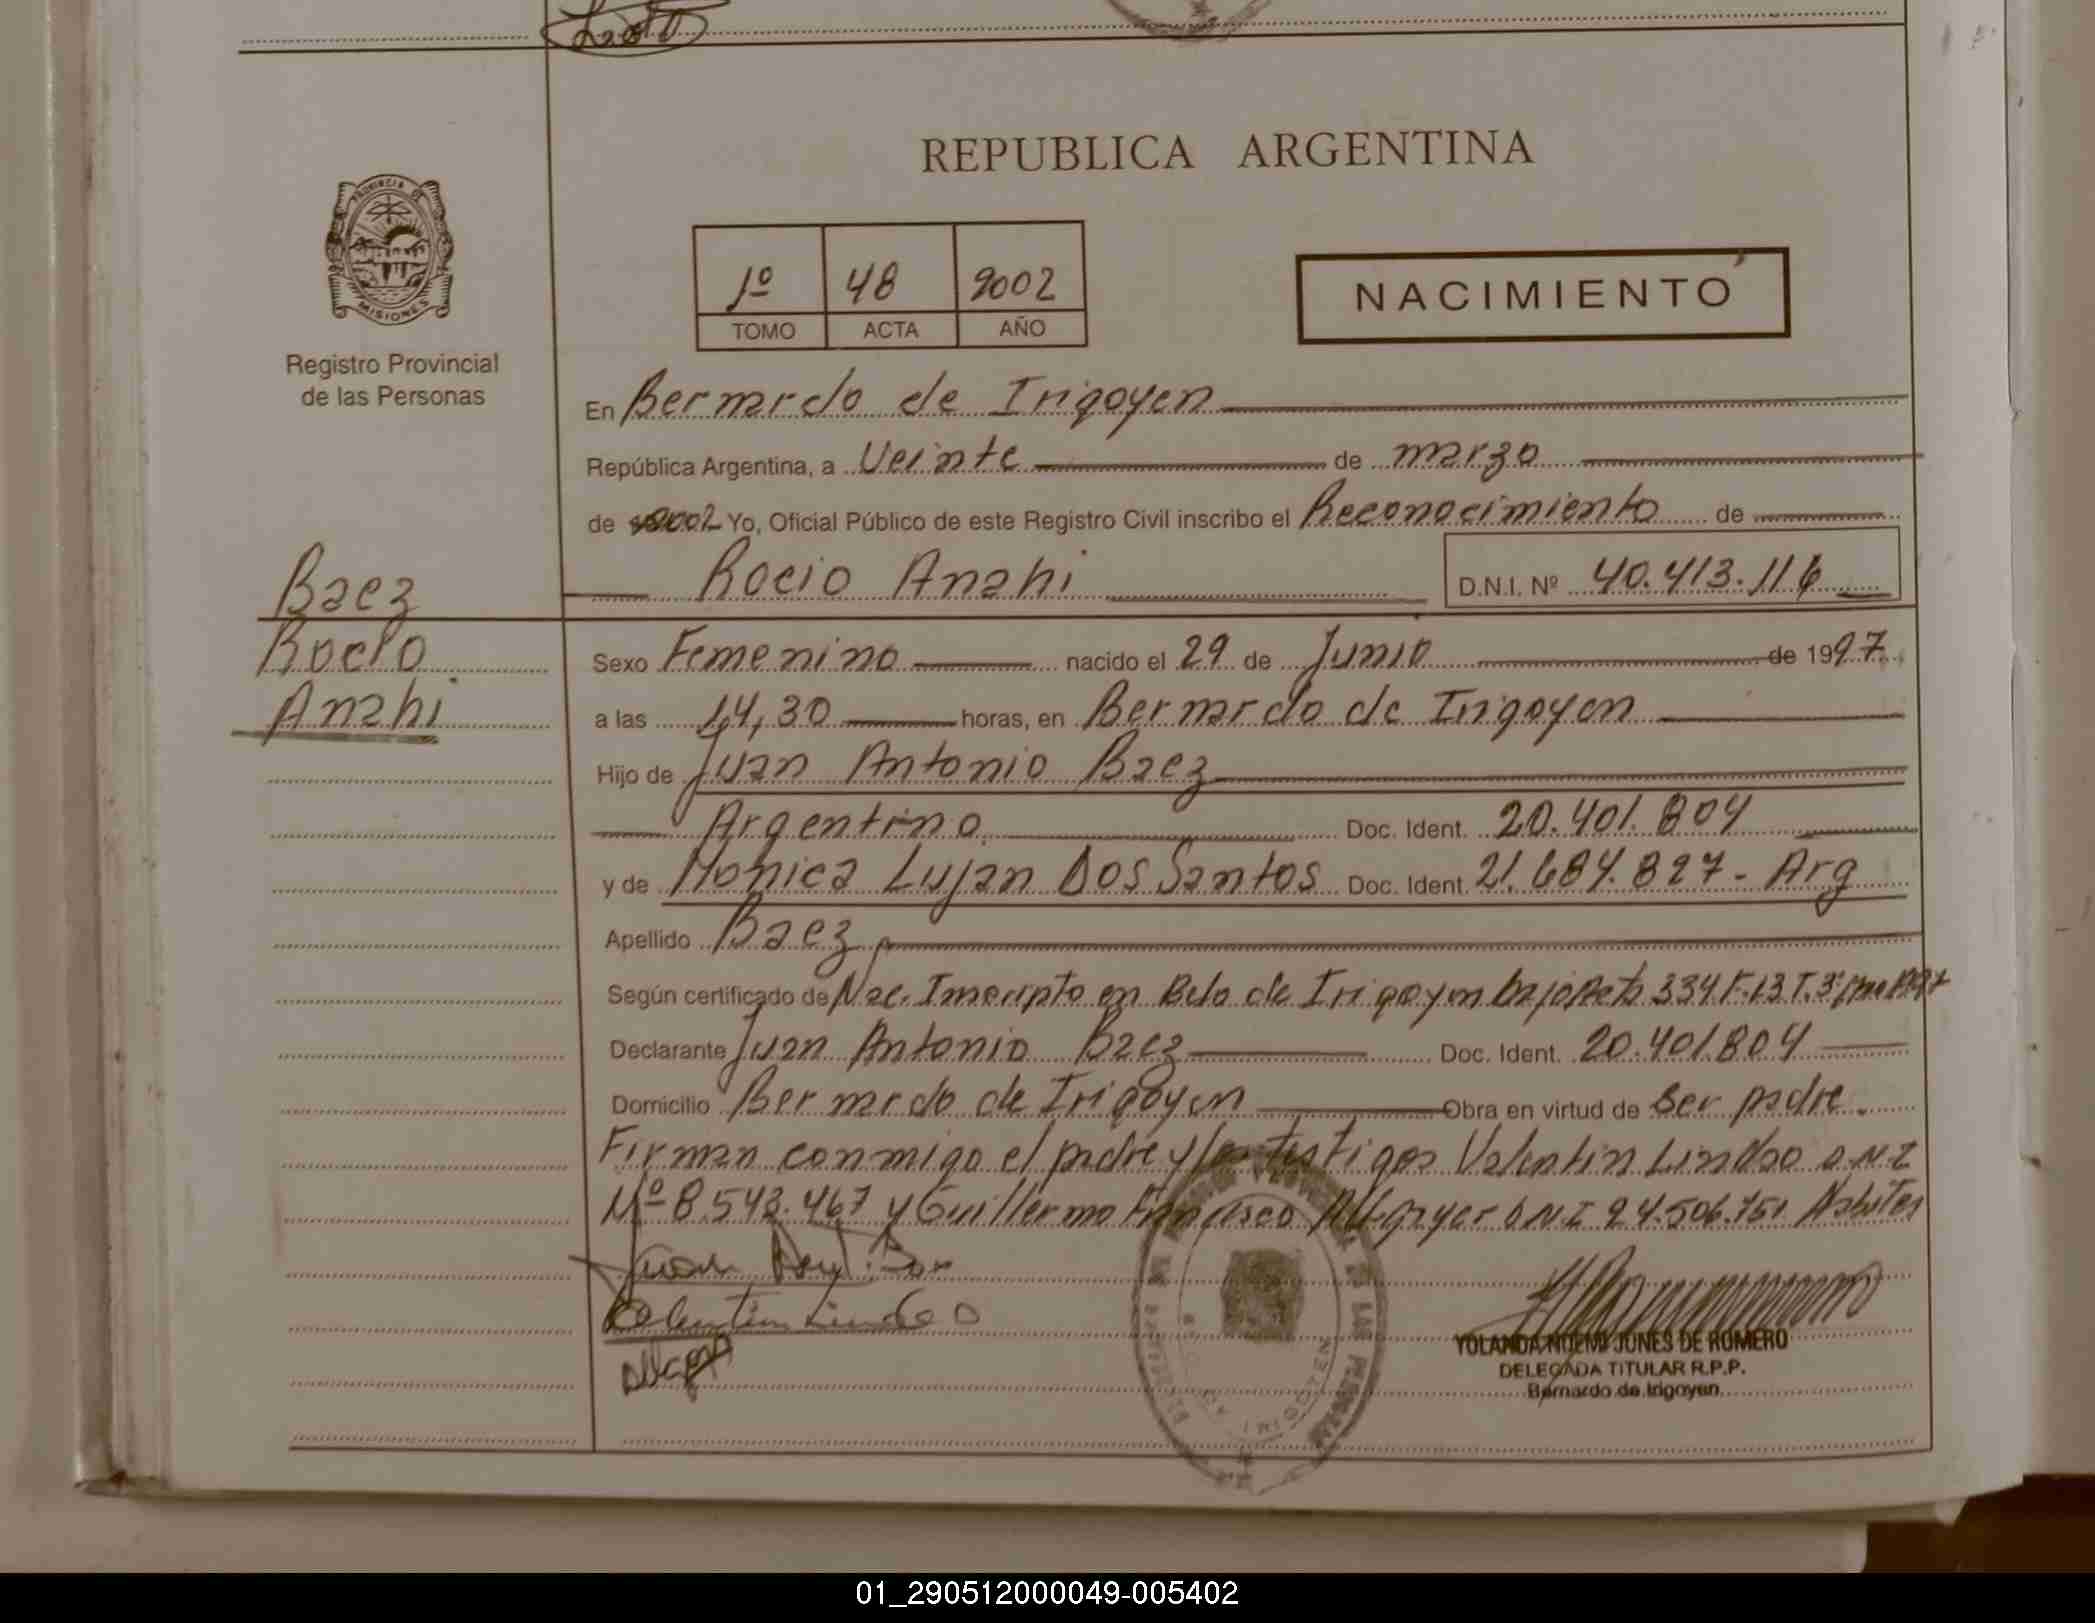 REPUBLICA ARGENTINA
PROVINCIA DE
MISIONES
Registro Provincial
de las Personas
1º 48 2002
TOMO ACTA AÑO
NACIMIENTO
En Bernardo de Irigoyen
República Argentina, a Veinte de marzo
de 2002 Yo, Oficial Público de este Registro Civil inscribo el Reconocimiento de
Rocio Anahi D.N.I. Nº 40.413.116
Baez
Rocio
Anahi
Sexo Femenino nacido el 29 de Junio de 1997
a las 14,30 horas, en Bernardo de Irigoyen
Hijo de Juan Antonio Baez
Argentino Doc. Ident. 20.401.804
y de Monica Lujan Dos Santos Doc. Ident. 21.684.827 - Arg
Apellido Baez
Según certificado de Nac. Inscripto en Bdo de Irigoyen bajo Acta 334 F.13 T.3º Año 1997
Declarante Juan Antonio Baez Doc. Ident. 20.401804
Domicilio Bernardo de Irigoyen Obra en virtud de Ser padre.
Firman conmigo el padre y los testigos Valentin Lindao D.N.I
Nº 8.543.467 y Guillermo Francisco D.N.I 24.506.751
Valentin
YOLANDA NOEMI JUNES DE ROMERO
DELEGADA TITULAR R.P.P.
Bernardo de Irigoyen
01_290512000049-005402